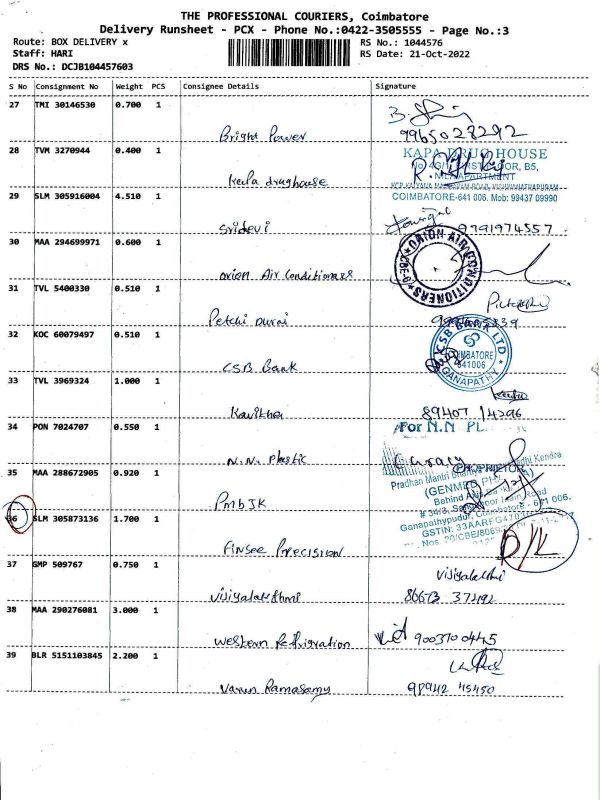 THE PROFESSIONAL COURIERS, Coimbatore
Delivery Runsheet - PCX - Phone No.:0422-3505555 - Page No.:3
Route: BOX DELIVERY x
RS No.: 1044576
Staff: HARI
RS Date: 21-Oct-2022
DRS No.: DCJB104457603
S No Consignment No Weight PCS Consignee Details Signature
27 TMI 30146530 0.700 1
Bright Power
9965028292
28 TVM 3270944 0.400 1
KAPA DRUG HOUSE
FIRST FLOOR, B5,
keela drughouse
29 SLM 305916004 4.510 1
COIMBATORE-641 006. Mob: 99437 09990
Sridevi
9791974557
30 MAA 294699971 0.600 1
ORION AIR CONDITIONERS
orion Air Conditioners
31 TVL 5400330 0.510 1
Petchi Durai
32 KOC 60079497 0.510 1
CSB BANK LTD
COIMBATORE
641006
GANAPATHY
CSB Bank
33 TVL 3969324 1.000 1
Kavitha
89407 14296
34 PON 7024707 0.550 1
For N.N PL
N.N. Plastic
PROPRIETOR
35 MAA 288672905 0.920 1
Pradhan Mantri Kendra
(GENMED
Behind
Road
PMBJK
Ganapathypudur, Coimbatore - 641 006.
36 SLM 305873136 1.700 1
GSTIN: 33AARFG
Nos. 20/CBE/806
Finsee Precision
D/L
37 GMP 509767 0.750 1
Vijiyalakshmi
Vijiyalakshmi
38 MAA 290276081 3.000 1
Western Refrigration
9003700445
39 BLR 5151103845 2.200 1
Varun Ramasamy
98942 45450